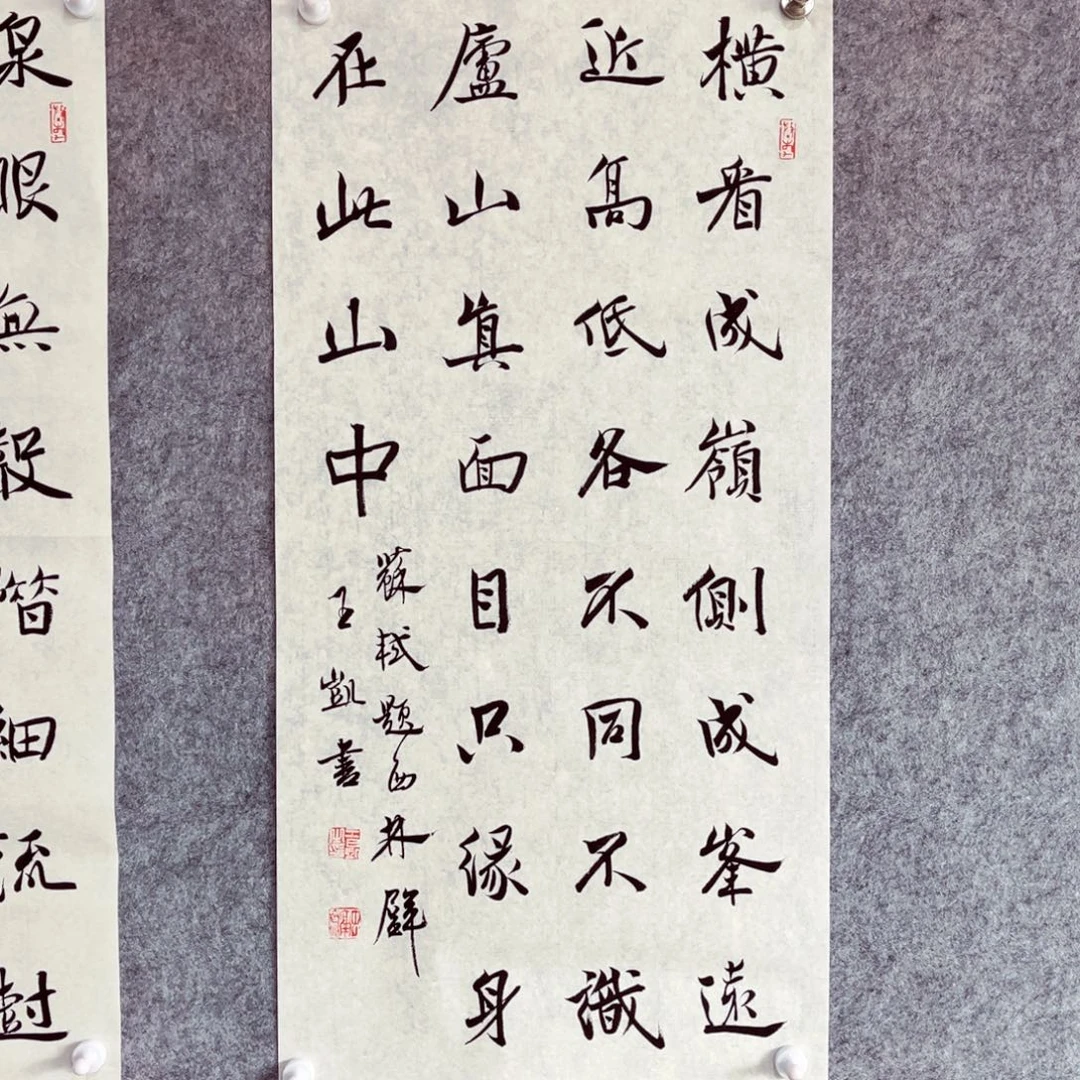 橫看成嶺側成峯遠
近髙低各不同不識
廬山真面目只緣身
在此山中
蘇軾題西林壁
王凱書
泉眼無聲惜細流樹